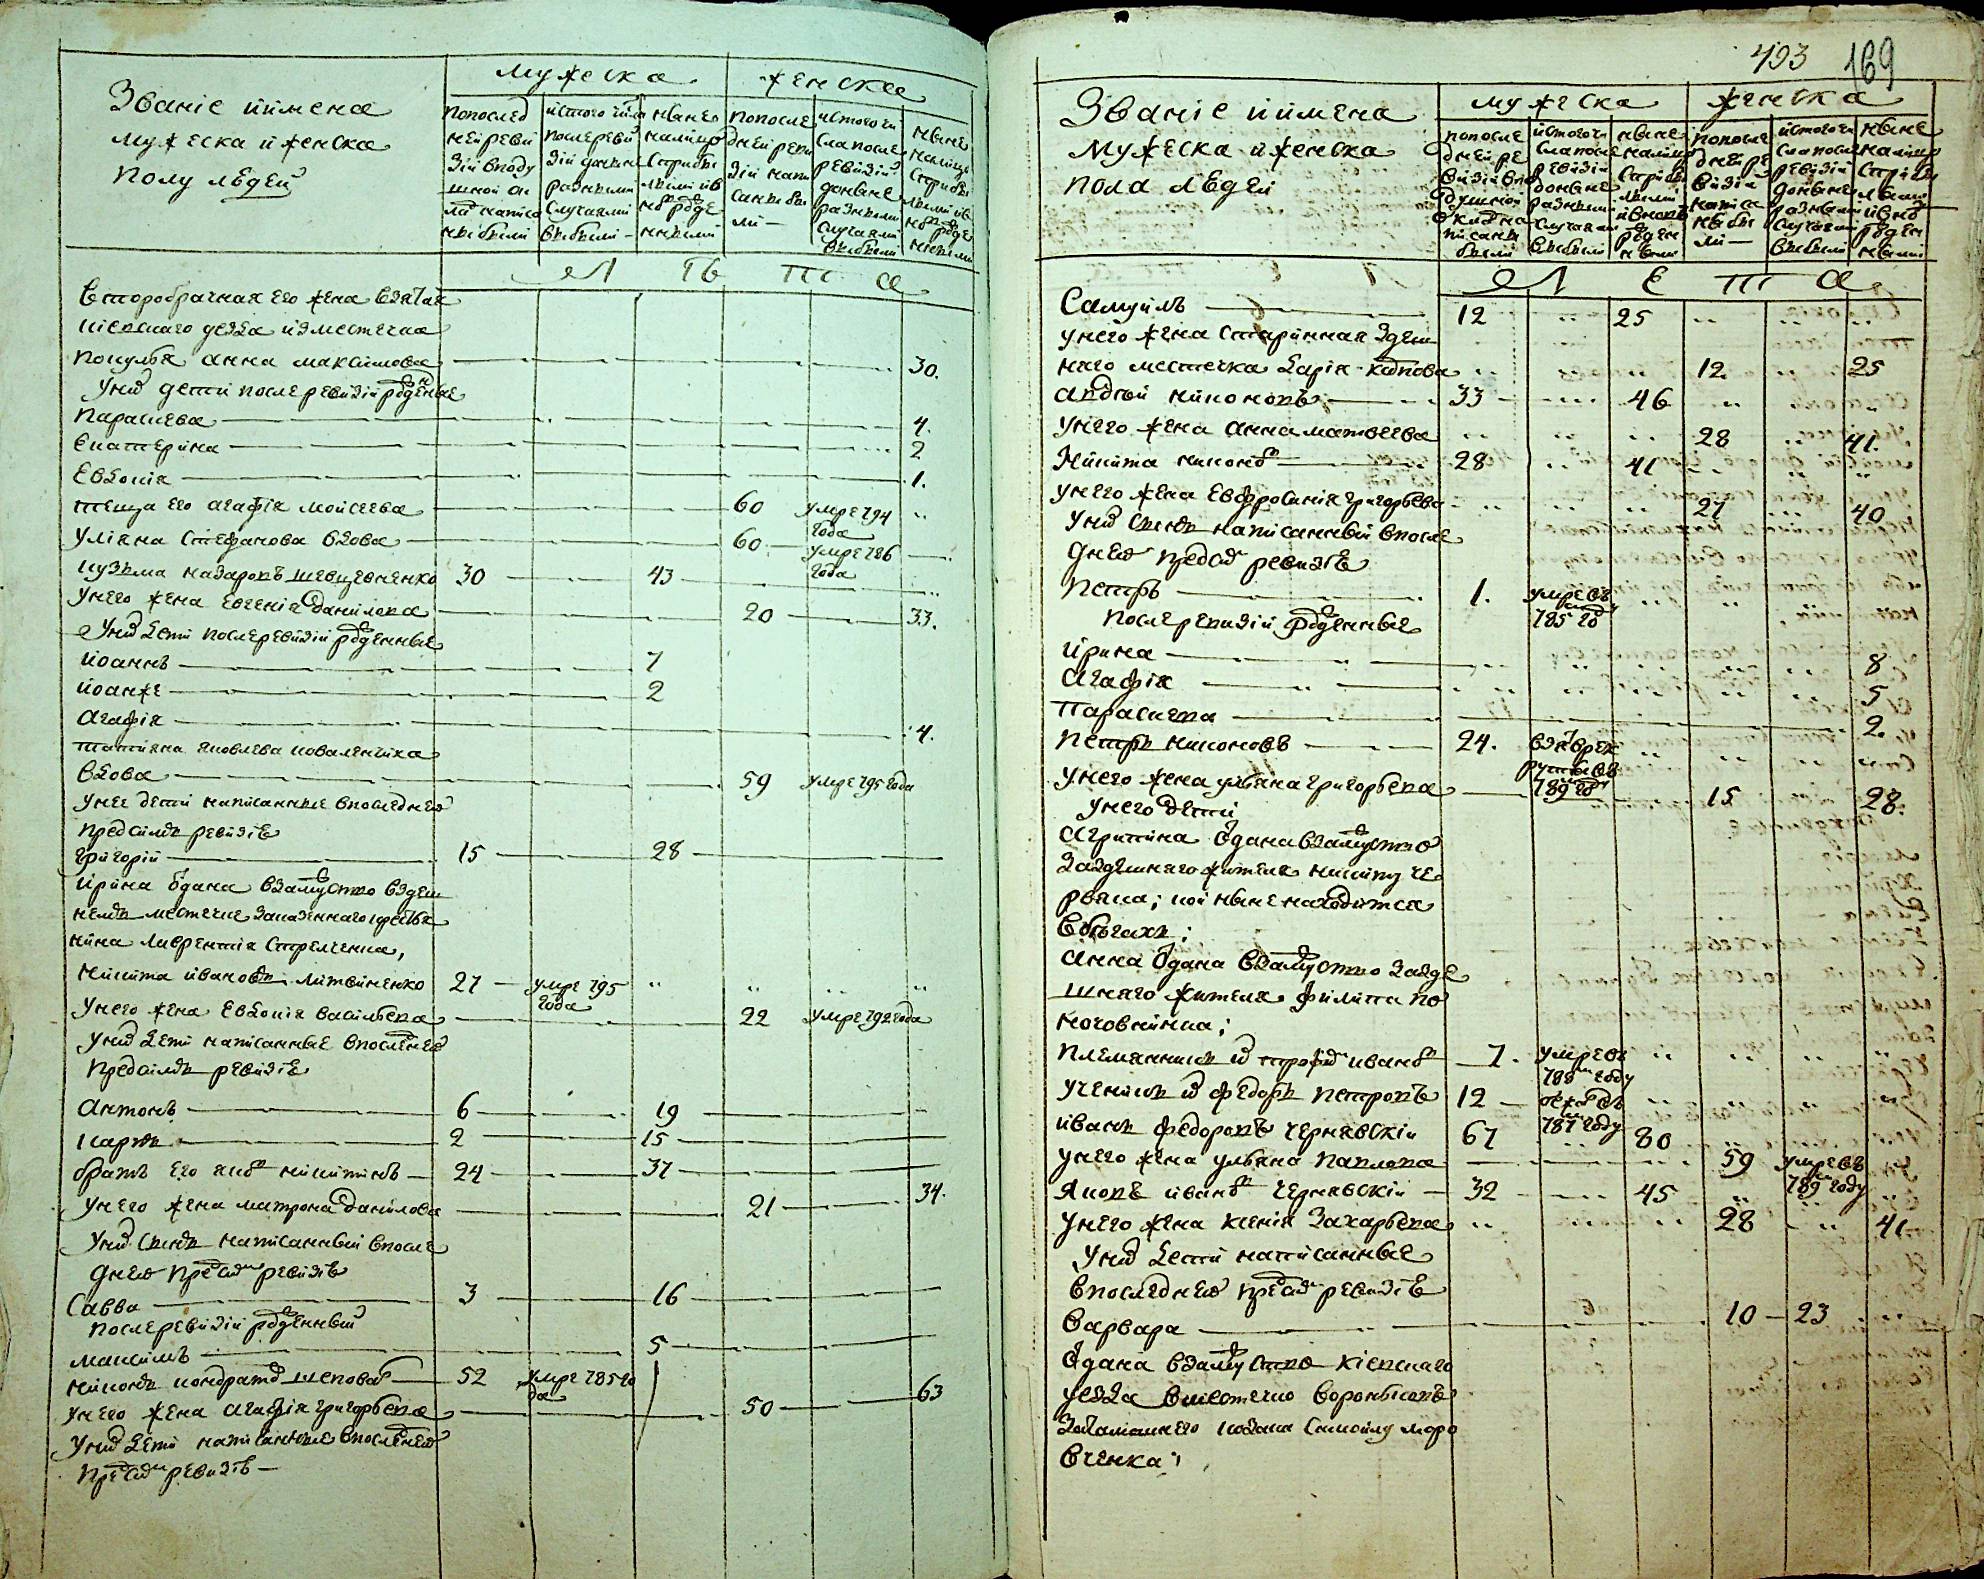 Званіе иимена
мужеска иженска
полу людей
мужеска
женска
попослед
ней реви
зіи вподу
шной ок
ладъ написа
ны были
истого числа
послереви
зіи доныне
разными
случаями
выбыли
ныне
налицо
спри быв
шими ив
новъ рожде
нными
попосле
дней реви
зіи напи
саны бы
ли
истого чи
сла после
ревизіи
доныне
разными
случаями
выбыли
ныне
налицо
спри быв
шими ив
новъ рожде
нными
Лѣта
второбрачная его жена взятая
кіевскаго уезда изместечка
анна максимова 30.
унихъ дети после ревизіи рожденные
Параскева 4.
Екатерина 2
Евдокія 1.
теща его агафія моисеева 60 умре 794 года
уліяна Стефанова вдова 60 умре 786 года
кузьма назаровъ шевцевненко 30 43
унего жена евгенія данилова 20 33.
унихъ дети послеревизіи рожденные
иоаннъ 7
иоанже 2
агафія 4.
татіяна яковлева коваленчиха
вдова 59 умре 795 года
унее дети написанные впоследнее
предсимъ ревизіе
григорій 15 28
ирина отдана взамужство вздеш
немъ местечке заказеннаго
лаврентія Стрелченка,
никита ивановъ литвиненко 27 умре 795 года
унего жена Евдокія васильева 22 умре 792 года
унихъ дети написанные впоследнее
предсимъ ревизіе
антонъ 6 19
карпъ 2 15
братъ его яковъ никитинъ 24 37
унего жена матрона данилова 21 34.
унихъ сынъ написанный впосле
днею предсимъ ревизіе
Савва 3 16
послеревизіи рожденный
максимъ 5
никонъ кондратовъ шеповалъ 52 умре 785 года
унего жена агафія григорьева 50 63
унихъ дети написанные впоследнею
предсимъ ревизіе
493 169
Званіе иимена
мужеска иженска
пола людей
мужеска
женска
попосле
дней ре
визіи впо
душной
окладъ на
писаны
были
истого чи
сла после
ревизіи
доныне
разными
случаями
выбыли
ныне
налицо
спри быв
шими
ивновъ
рожден
ными
попосле
дней ре
визіи
написа
ны бы
ли
истого чи
сла после
ревизіи
доныне
разными
случаями
выбыли
ныне
налицо
спри быв
шими
ивновъ
рожден
ными
Лѣта
Самуилъ 12 25
унего жена старинная здеш
няго местечка дарія карпова 12 25
андрей никоновъ 33 46
унего жена анна матвеева 28 41.
Никита никоновъ 28 41
унего жена евфросинія григорьева 27 40
унихъ сынъ написанный впосле
днею предсимъ ревизіе
петръ 1. умре въ 785 году
послеревизіи рожденные
ирина 8
агафія 5
параскева 2.
петръ никоновъ 24. взятъ врекруты въ 789 году
унего жена ульяна григорьева 15 28.
унего дети
агрипина отдана взамужство
заздешняго жителя никиту че
рвяка; кои ныне находится
вбегахъ;
анна отдана взамужство зазде
шняго жителя филипа по
ночовника;
племянникъ ихъ трофимъ ивановъ 7. умре въ 788 году
ученикъ ихъ федоръ петровъ 12 787 году
иванъ федоровъ чернявскій 67 80
унего жена ульяна павлова 59 умре въ 789 году
яковъ ивановъ чернявскій 32 45
унего жена ксенія захарьева 28 41
унихъ дети написанные
впоследнею предсимъ ревизіе
варвара 10 23
отдана взамужство кіевскаго
уезда вместечко вороньковъ
затамошнего козака самойлу моро
вченка;